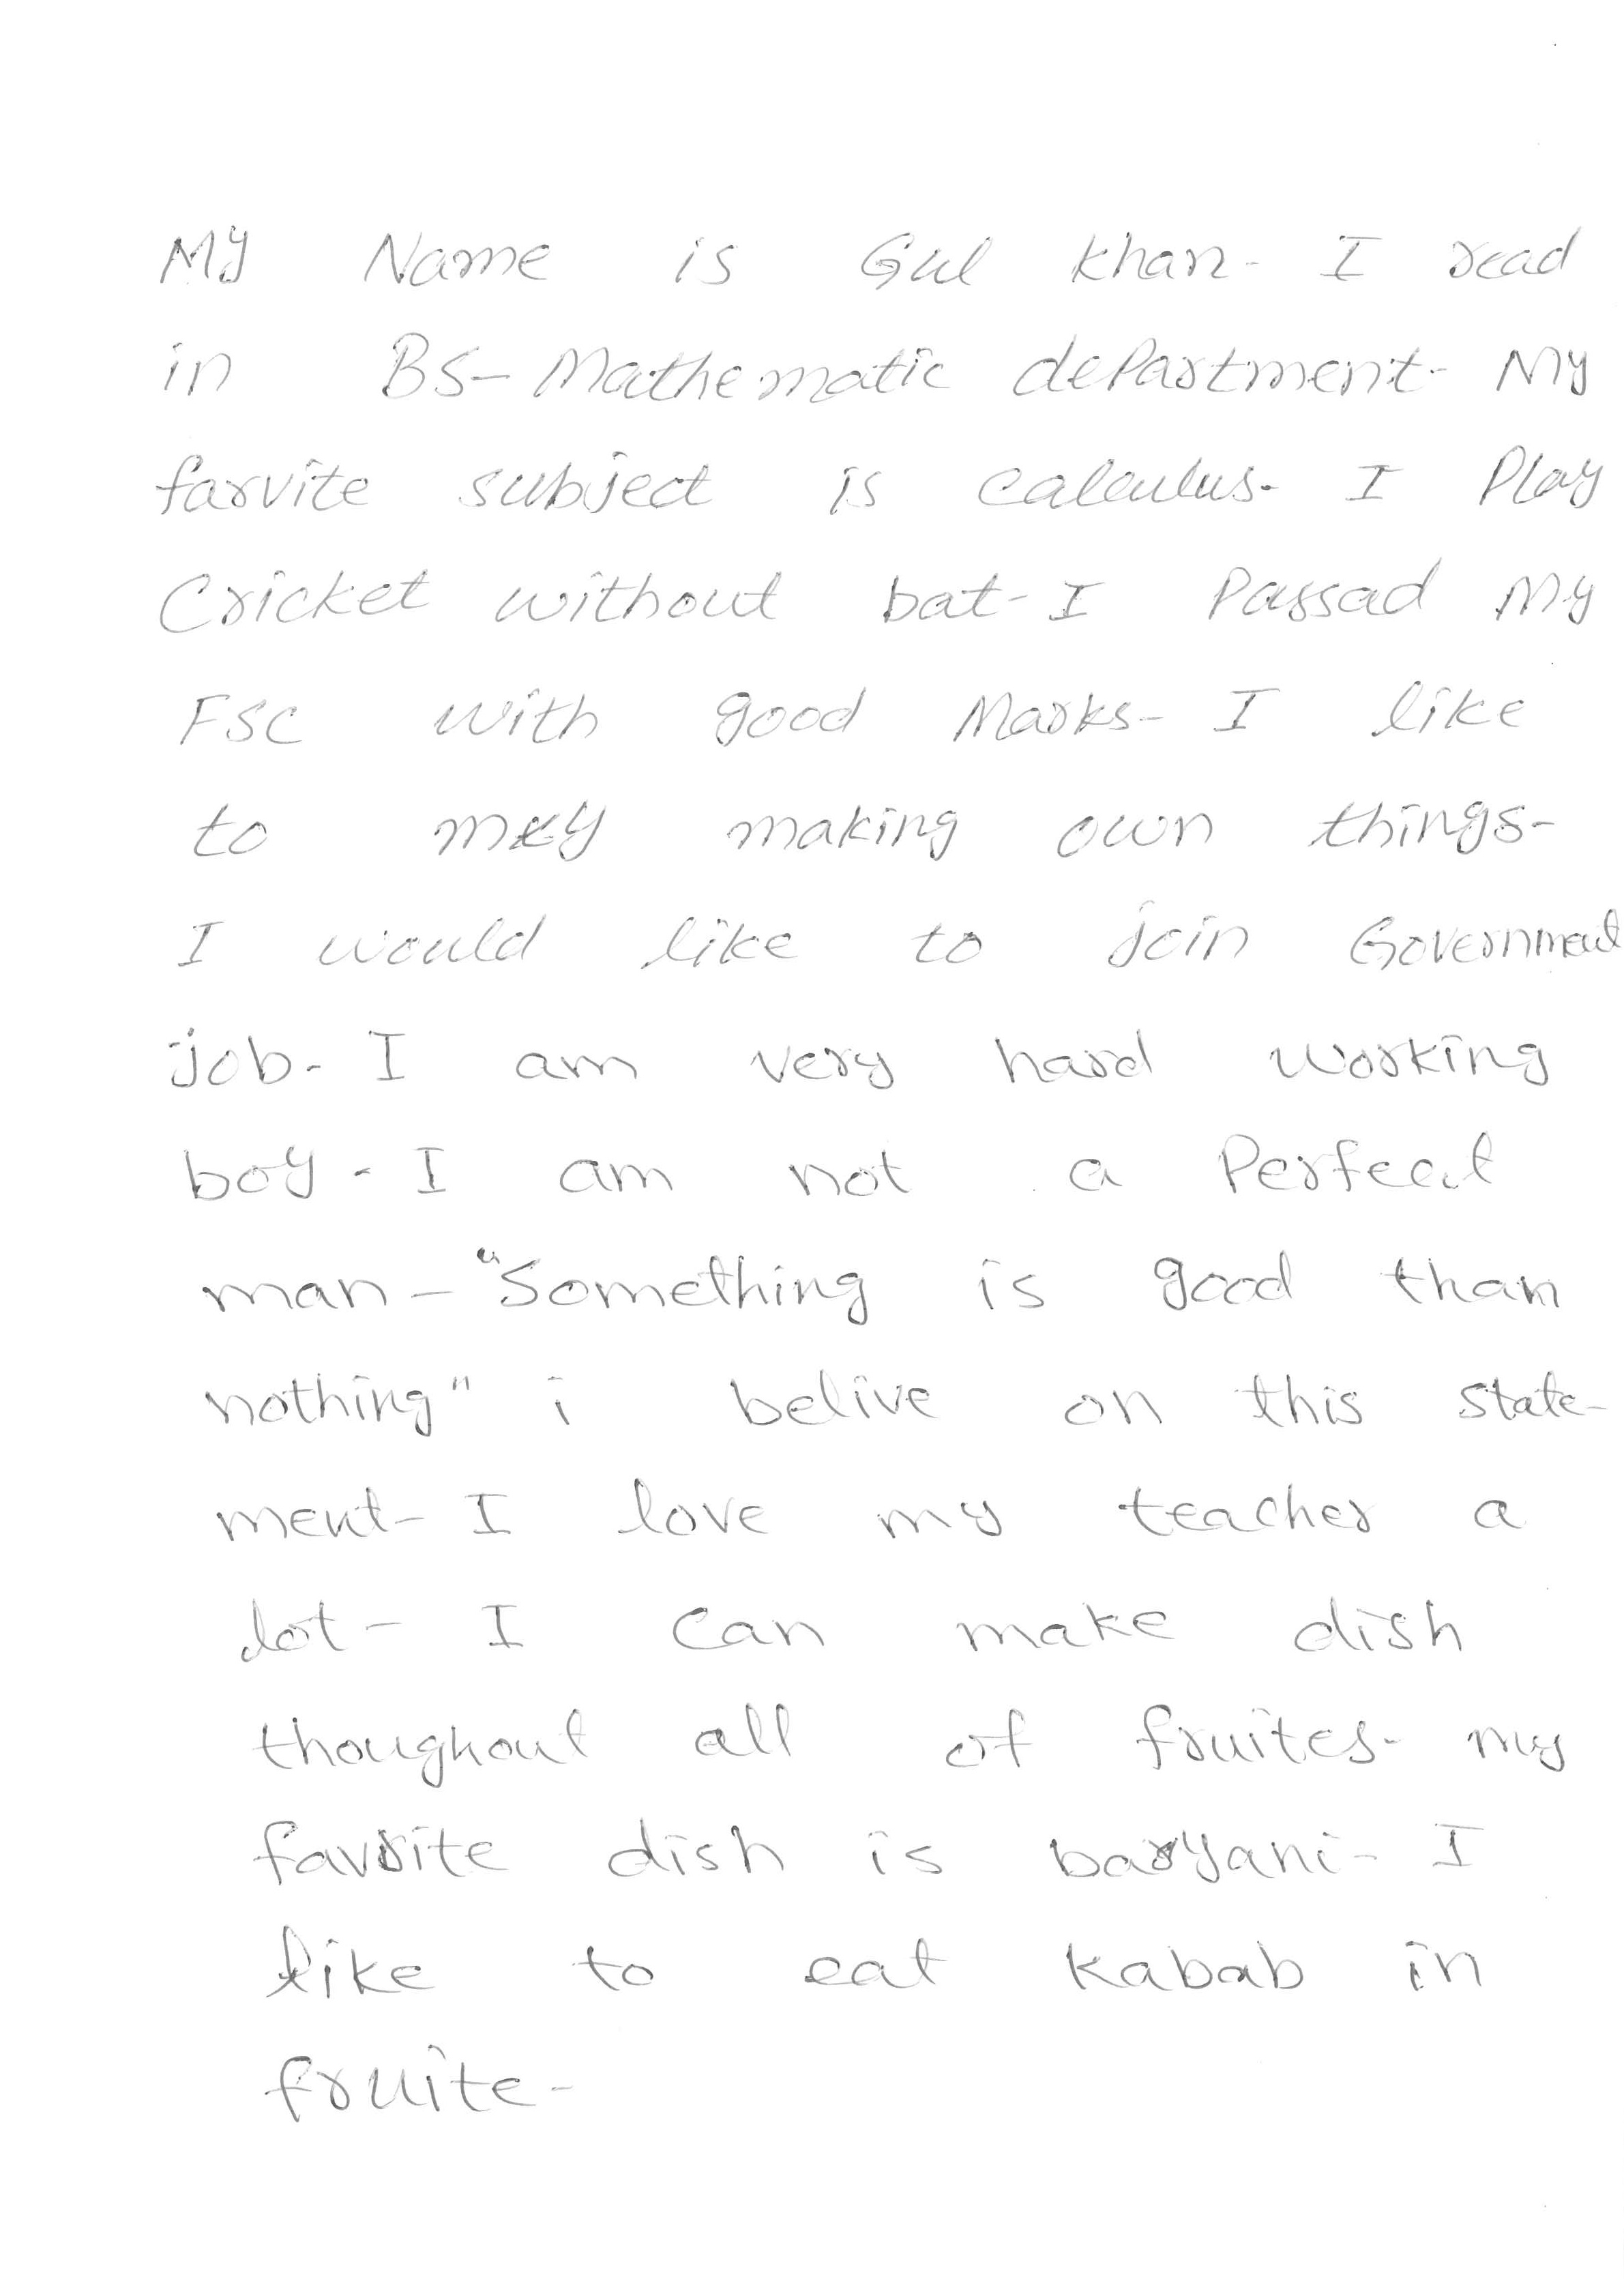 My Name is Gul khan- I read
in BS-Mathematic department- My
farvite subject is calculus- I Play
Cricket without bat-I Passad My
FSC with good Marks- I like
to making own things-
I would like to join Government
job- I am very hard working
boy-I am not a Perfect
man-"Something is good than
nothing" i belive on this state-
ment- I love my teacher a
lot- I can make dish
thoughout all of fruites- my
favrite dish is baryani- I
like to eat kabab in
fruite-